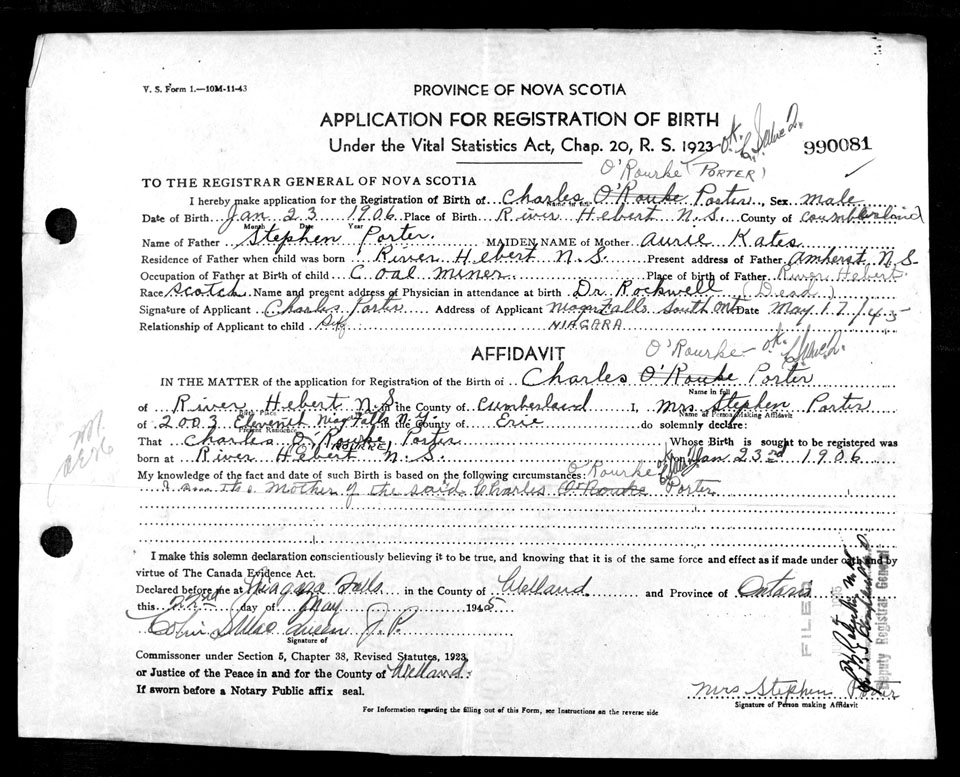 V. S. Form 1.—10M-11-43
PROVINCE OF NOVA SCOTIA
APPLICATION FOR REGISTRATION OF BIRTH
Under the Vital Statistics Act, Chap. 20, R. S. 1923
O.K.
990081
O'Rourke (PORTER)
TO THE REGISTRAR GENERAL OF NOVA SCOTIA
I hereby make application for the Registration of Birth of Charles O'Rouke Porter, Sex male
Name in Full
Date of Birth Jan 23 1906 Place of Birth River Hebert N.S. County of Coumberland
Month Date Year
Name of Father Stephen Porter. MAIDEN NAME of Mother Aurie Kates
Residence of Father when child was born River Hebert N.S. Present address of Father Amherst N.S.
Occupation of Father at Birth of child Coal miner Place of birth of Father River Hebert.
Race Scotch Name and present address of Physician in attendance at birth Dr Rockwell (Dead)
Signature of Applicant Charles Porter Address of Applicant Niagr Falls South Ont Date May 17/45
Relationship of Applicant to child Self NIAGARA
AFFIDAVIT
O'Rourke - O.K.
IN THE MATTER of the application for Registration of the Birth of Charles O'Rouke Porter
Name in full
of River Hebert N.S. in the County of Cumberland I, Mrs Stephen Porter
Birth Place Name of Person Making Affidavit
of 2003 Eleventh Niag Falls N.Y. in the County of Erie do solemnly declare:
Present Residence
That Charles O'Rouke Porter Whose Birth is sought to be registered was
born at River Hebert N.S. on Jan 23rd 1906
My knowledge of the fact and date of such Birth is based on the following circumstances: O'Rourke
I am the Mother of the said Charles O'Rouke Porter
I make this solemn declaration conscientiously believing it to be true, and knowing that it is of the same force and effect as if made under oath and by
virtue of The Canada Evidence Act.
Declared before me at Niagara Falls in the County of Welland and Province of Ontario
this 22nd day of May 1945
J.P.
Signature of
Commissioner under Section 5, Chapter 38, Revised Statutes, 1923,
or Justice of the Peace in and for the County of Welland.
If sworn before a Notary Public affix seal.
Mrs Stephen Porter
Signature of Person making Affidavit
For Information regarding the filling out of this Form, see Instructions on the reverse side
FILED
Deputy Registrar General